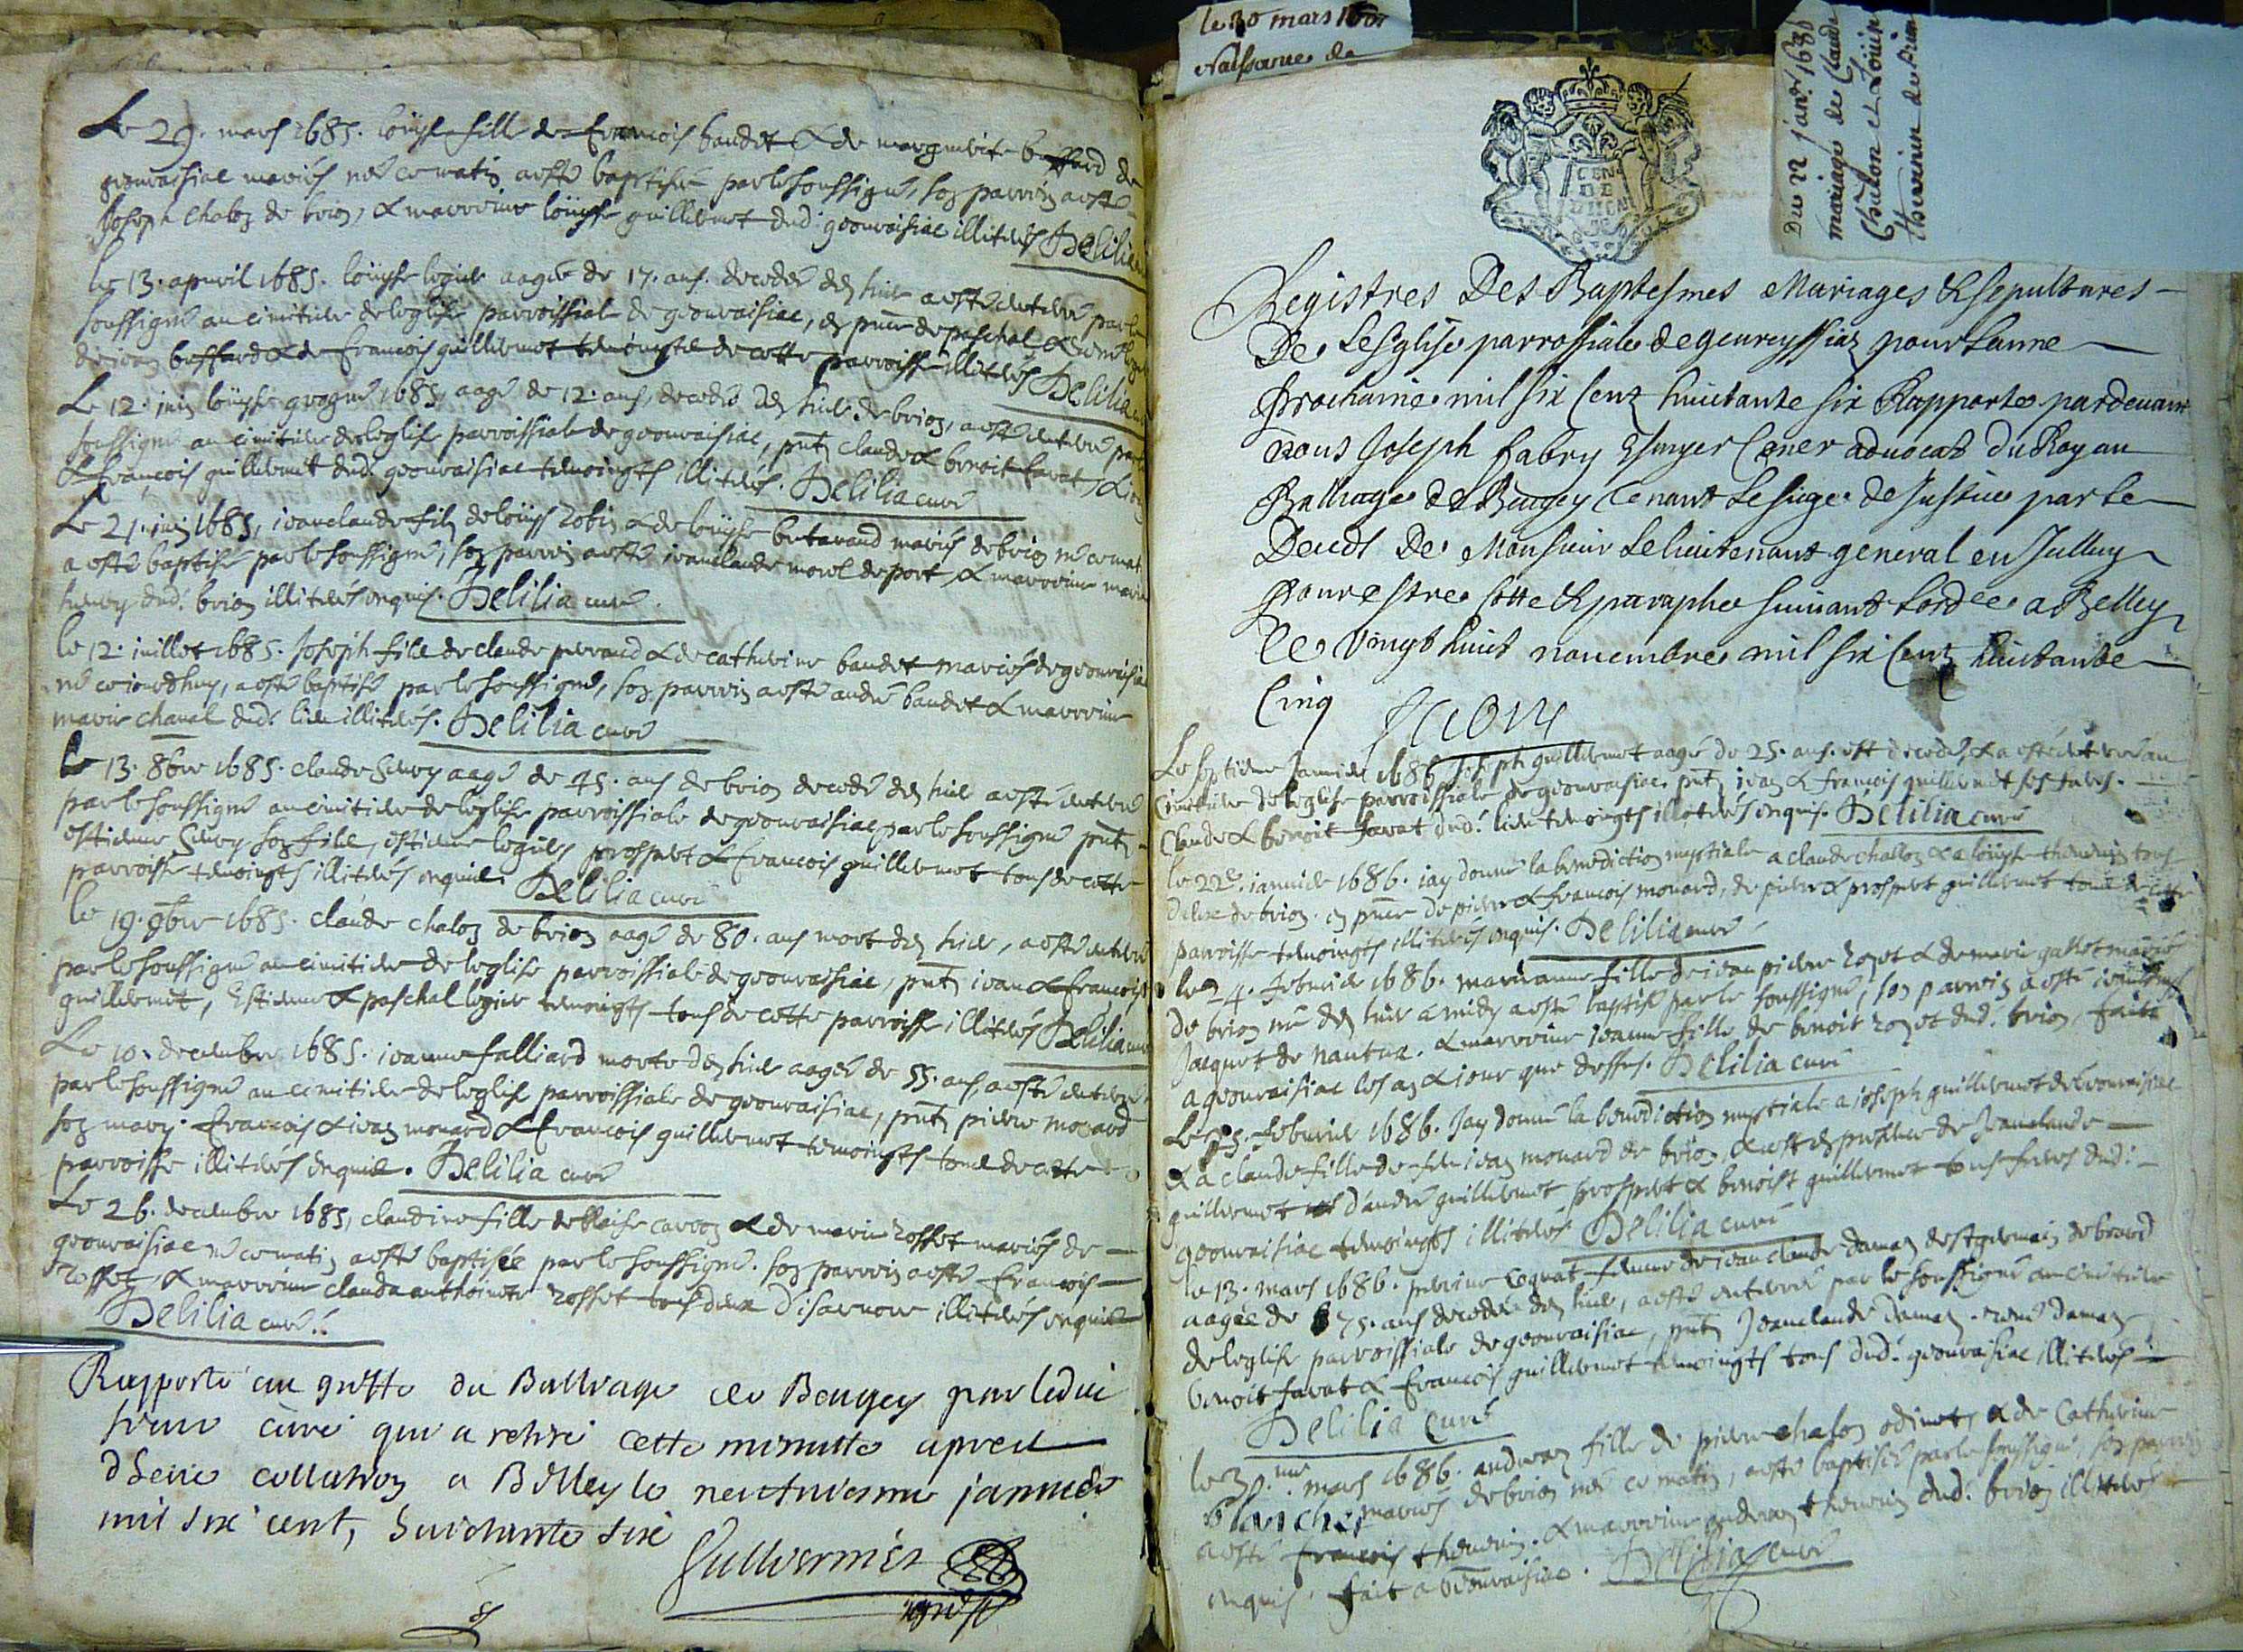 Le 29. mars 1685. loüyse fille de francois baudet & de marguerite buffard de
geouraisiac mariés née ce matin a esté baptisée par le soussigné, son parrin a esté
Joseph chalon de brion, & marroine loüyse guillermet dud. geouraisiac illiterés Delilia
le 13. apuril 1685. loüyse logier aagée de 17. ans. decedée des hier a esté enterrée par le
soussigné au cimitiere de leglise parroissiale de geouraisiac, en pnce de paschal &
de jean buffard & de francois guillermet temoingts de cette parroisse illiterés Delilia
Le 12. juin loüyse 1685, aagé de 12. ans, decedée des hier de brion, a esté enterrée par le
soussigné au cimitiere de leglise parroissiale de geouraisiac, pnts claude & benoit favat,
& francois guillermet dud. geouraisiac temoingts illiterés. Delilia curé
Le 21. juin 1685, jeanclaude fils de loüys robin & de loüyse mariés de brion né ce mat
a esté baptisé par le soussigné, son parrin a esté jeanclaude morel de port, & marroine marie
dud. brion illiterés enquis. Delilia curé.
le 12. juillet 1685. Joseph fils de claude peraud & de catherine baudet mariés de geouraisiac
né ce jourdhuy, a esté baptisé par le soussigné, son parrin a esté andré baudet & marroine
marie chanal dud. lieu illiterés. Delilia curé
le 13. 8bre 1685. claude aagé de 45. ans de brion decedé des hier a esté enterré
par le soussigné au cimitiere de leglise parroissiale de geouraisiac par le soussigné pnts
estienne son fils, estienne logier, prosper & francois guillermet tous de cette
parroisse temoingts illiterés enquis. Delilia curé
le 19. 9bre 1685. claude chalon de brion aagé de 80. ans mort des hier, a esté enterré
par le soussigné au cimitiere de leglise parroissiale de geouraisiac, pnts jean & francois
guillermet, Estienne & paschal logier temoingts tous de cette parroisse illiterés Delilia curé
Le 10. decembre 1685. jeanne falliard morte des hier aagée de 55. ans, a esté enterrée
par le soussigné au cimitiere de leglise parroissiale de geouraisiac, pnts pierre monard
son mary. francois & jean monard & francois guillermet temoingts tous de cette
parroisse illiterés enquis. Delilia curé
Le 26. decembre 1685, claudine fille de blaise caron & de marie rosset mariés de
geouraisiac né ce matin a esté baptisée par le soussigné. son parrin a esté francois
rosset & marroine clauda anthoinete rosset tous deux d'isarnore illiterés enquis
Delilia curé.
Rapporté au greffe du Balliage de Beugey par ledit
sieur curé qui a retiré cette minutte apres
dheue collation a Belley le neufviesme janvier
mil six cent, huictante six
Guillermet
le 30 mars
Naissance de
Du 22 janr. 1686
mariage de Claude
Chalon et Loüise
thevenin de brion
CEN
DE
Registres Des Baptesmes Mariages & sepultures
De Lesglise parrossiale de geureyssiaz pour Lanne
prochaine mil six Cent huictante six Rapporte pardevant
nous Joseph fabry Escuyer Coner advocat du Roy au
Balliage de Beugey tenant Le siege de Justice par le
Deceds De Monsieur Le lieutenant general en
pour estre Cotte & paraphe suivant Lordce a Belley
le vingt huict novembre mil six Cent huictante
Cinq
Le septieme Janvier 1686 Joseph guillermet aagé de 25. ans. est decedé, & a esté enterré au
Cimitiere de leglise parroissiale de geouraisiac pnts jean & francois guillermet ses freres.
Claude & benoit favat dud. lieu temoingts illiterés enquis. Delilia curé
le 22e. janvier 1686. jay donné la benediction nuptiale a claude chalon & a loüyse thevenin tous
deux de brion. en pnce de pierre & francois monard, de pierre & prosper guillermet tous de cette
parroisse temoingts illiterés enquis. Delilia curé
le 24. febvrier 1686. marianne fille de jean pierre rozet & de marie gallet mariés
de brion née des hier a midy a esté baptisée par le soussigné, son parrin a esté
Jacquet de nantua. & marroine jeanne fille de benoit rozet dud. brion, fait
a geouraisiac les an & jour que dessus. Delilia curé
Le 25. febvrier 1686. Jay donné la benediction nuptiale a joseph guillermet de geouraisiac
& a claude fille de feu jean monard de brion, & en presence de Jeanclaude
guillermet d'andré guillermet prosper & benoist guillermet tous freres dud.
geouraisiac temoingts illiterés Delilia curé
le 13. mars 1686. perrine coquat femme de jean claude daman de st germain de beard
aagée de 75. ans decedée des hier, a esté enterrée par le soussigné au cimitiere
de leglise parroissiale de geouraisiac, pnts Jeanclaude daman. rené daman
benoit favat & francois guillermet temoingts tous dud. geouraisiac illiterés
Delilia Curé
le 30.me mars 1686. andrean fille de pierre chalon & de Catherine
blanchet mariés de brion née ce matin, a esté baptisée par le soussigné, son parrin
a esté francois thevenin. & marroine andrean thevenin dud. brion illiterés
enquis. fait a geouraisiac. Delilia curé